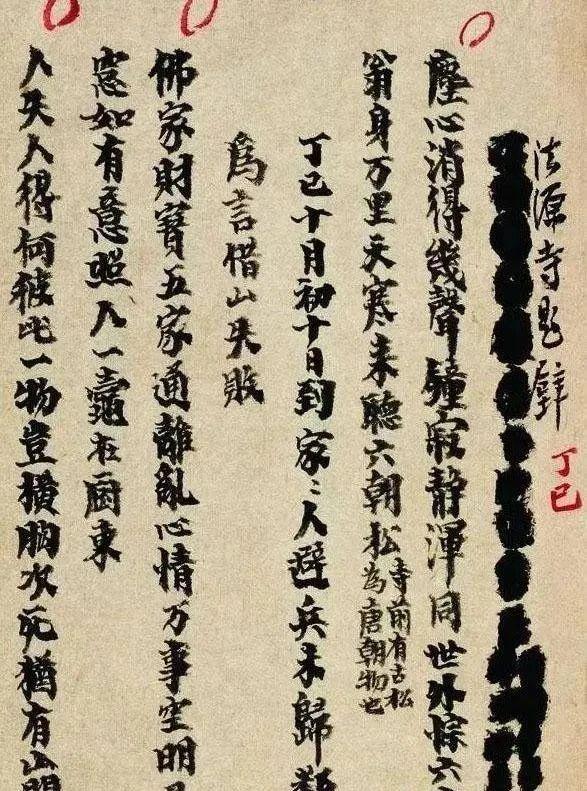 法源寺題壁
丁巳
塵心消得幾聲鐘寂静渾同世外悰六
翁身万里天寒来聽六朝松寺前有古松为唐朝物也
丁巳十月初十日到家〻人避兵未歸
為言惜山失敗
佛家財寶五家通離亂心情万事空明
窓如有意照人一
在厨東
人失人得何彼此一物豈橫胸次死猶有山